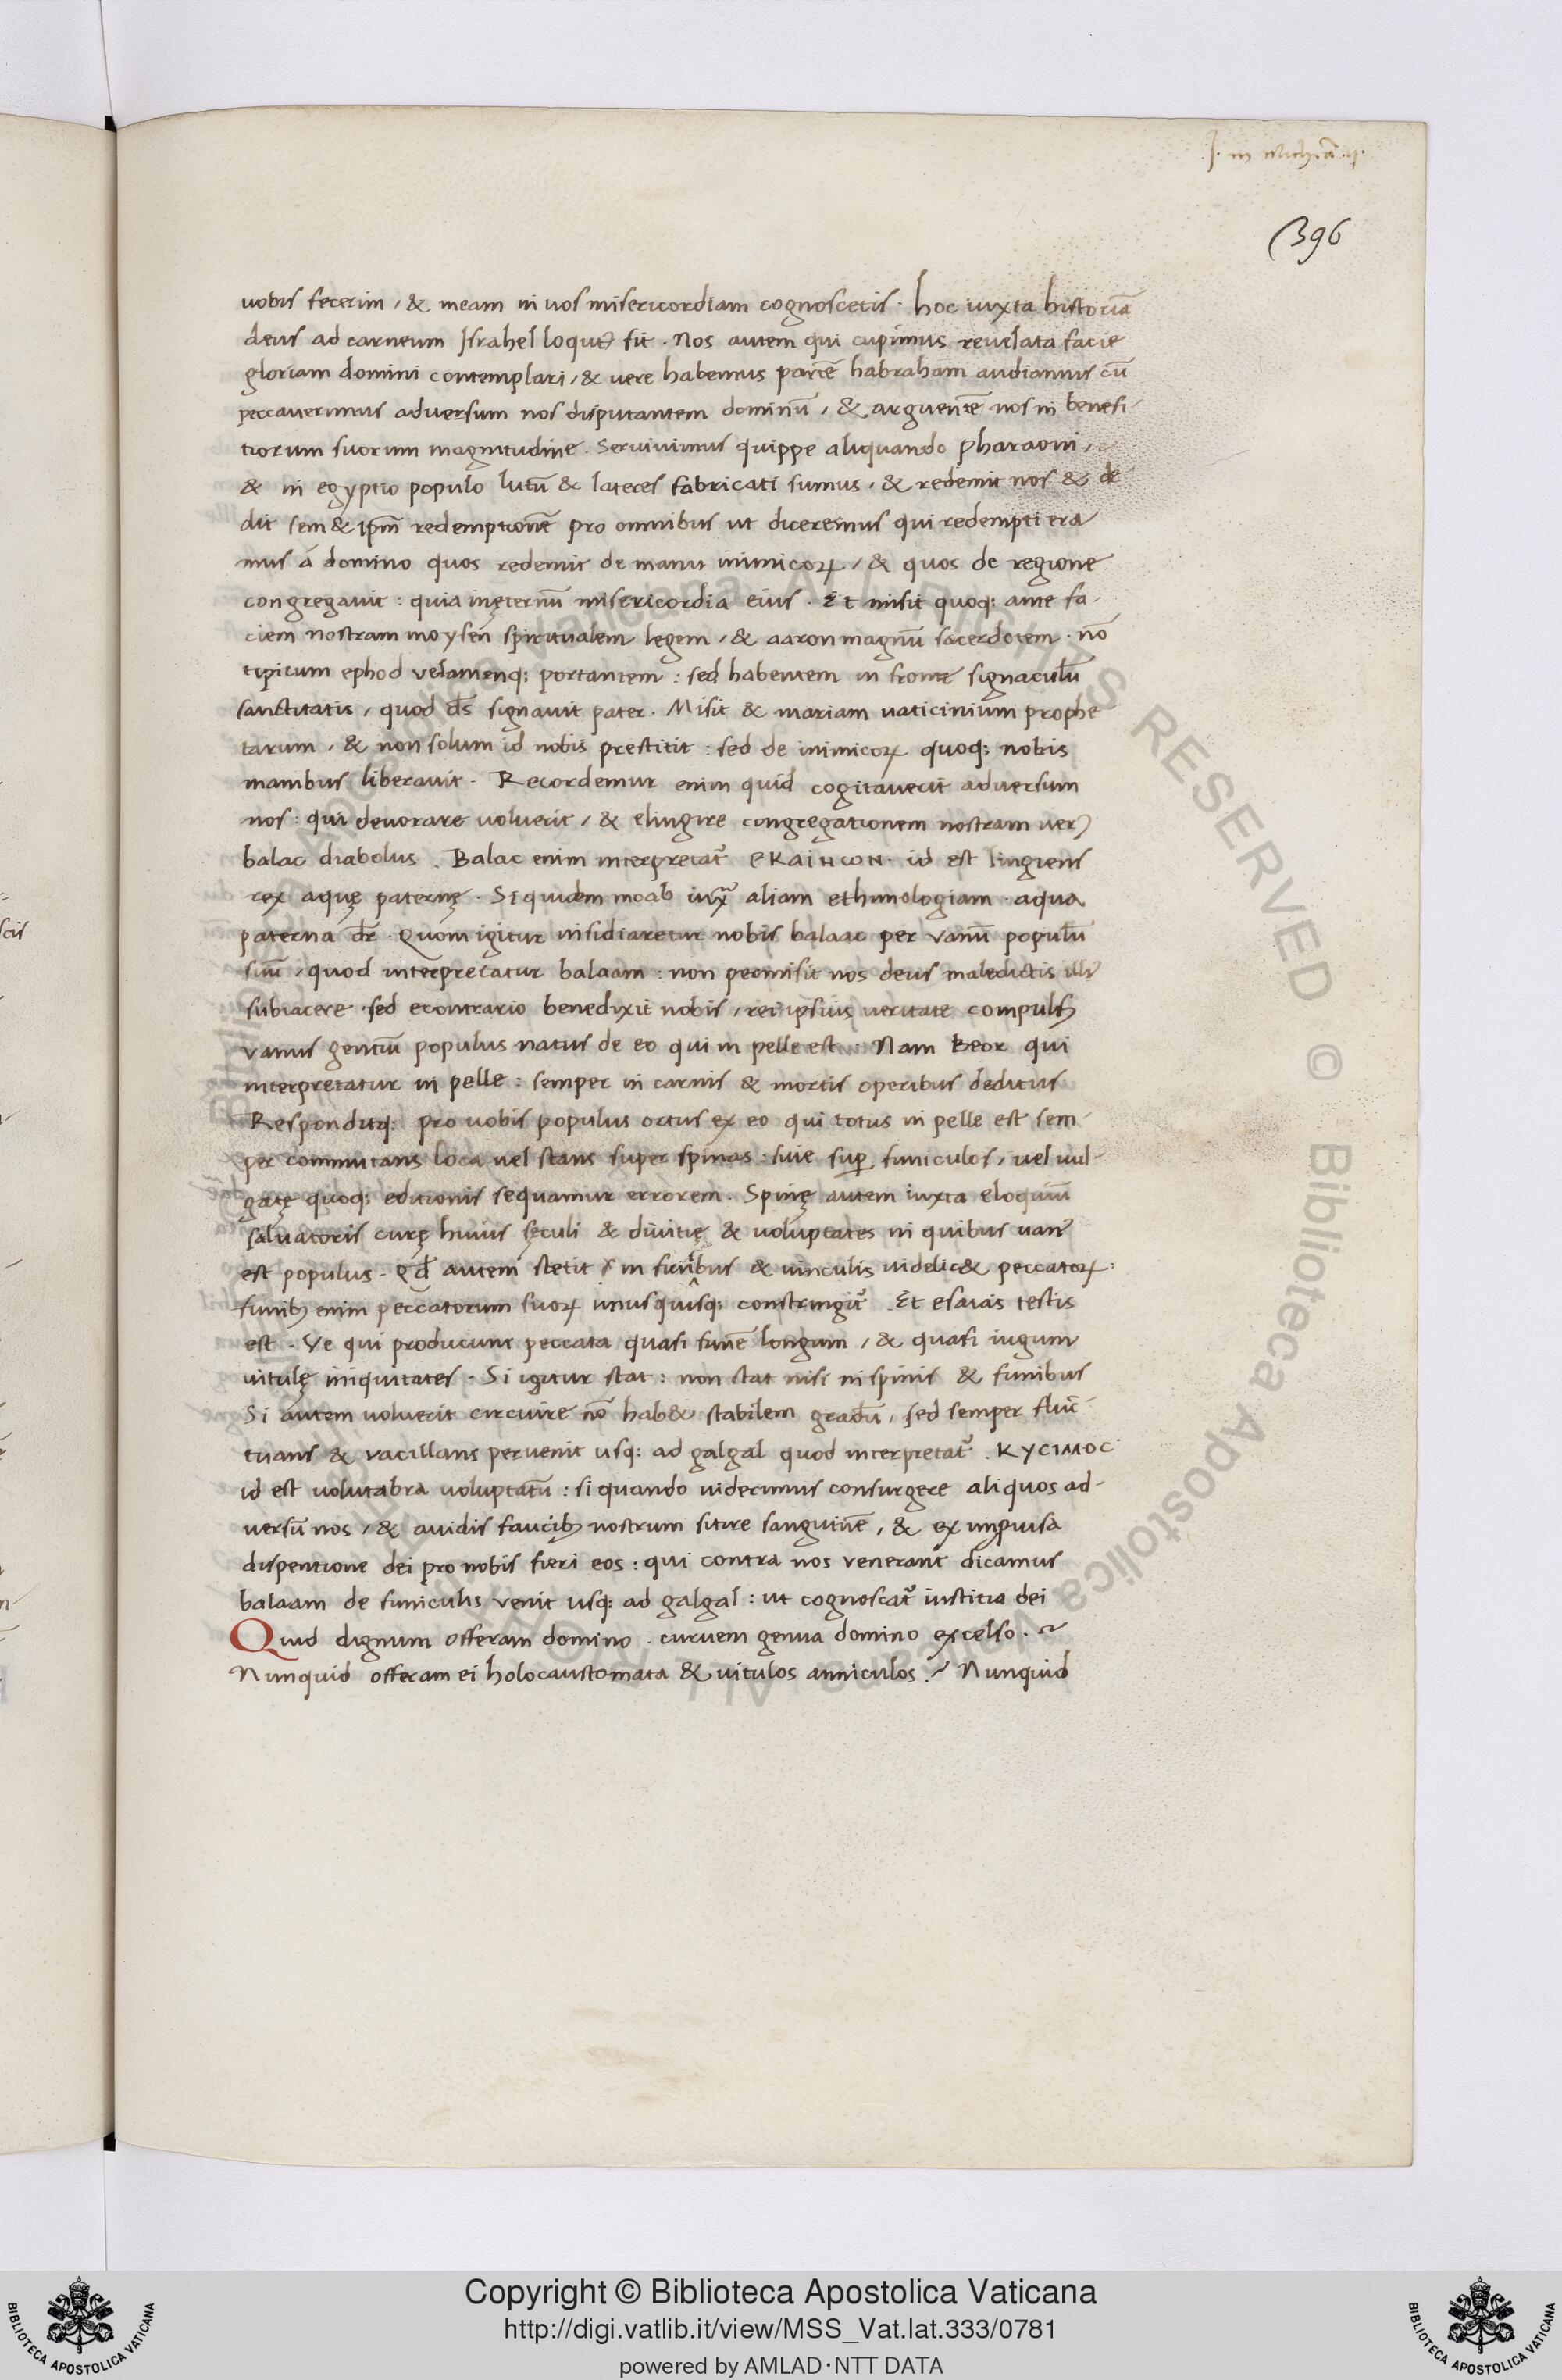 J. in Michea. ij.
396
uobis fecerim, & meam in uos misericordiam cognoscetis. hoc iuxta historiā
deus ad carneum Israhel loqut᷒ sit. Nos autem qui cupimus reuelata facie
gloriam domini contemplari, & uere habemus patrē habraham audiamus cū
peccauerimus aduersum nos disputantem dominū, & arguentē nos in benefi-
tiorum suorum magnitudine. Seruiuimus quippe aliquando pharaoni,
& in egyptio populo lutū & lateres fabricati sumus, & redemit nos & de
dit sem& ip̄m redemptionē pro omnibus ut diceremus qui redempti era
mus á domino quos redemit de manu inimicoꝝ, & quos de regione
congregauit: quia inęternū misericordia eius. Et misit quoq; ante fa-
ciem nostram moysen spiritualem legem, & aaron magnū sacerdotem. nō
tipicum ephod velamenq; portantem: sed habentem in fronte signaculū
sanctitatis, quod ds̄ signauit pater. Misit & mariam uaticinium prophe
tarum, & non solum id nobis prestitit: sed de inimicoꝝ quoq; nobis
manibus liberauit. Recordemur enim quid cogitauerit aduersum
nos: qui deuorare uoluerit, & elingire congregationem nostram uer᷒
balac diabolus. Balac enim interpretat᷑ ЄΚΛΙΗωΝ. id est lingiens
rex aquę paternę. Siquidem moab iuxͣ aliam ethimologiam. aqua
paterna dr̄. Quom igitur insidiaretur nobis balaac per vanū populū
suū, quod interpretatur balaam: non permisit nos deus maledictis illi᷒
subiacere. sed econtrario benedixit nobis, rei ipsius ueritate compuls᷒
vanus gentiū populus natus de eo qui in pelle est. Nam Beor qui
interpretatur in pelle: semper in carnis & mortis operibus deditus
Responditq; pro uobis populus ortus ex eo qui totus in pelle est sem-
per commutans loca uel stans super spinas: siue suꝑ funiculos, uel uul-
gatę quoq; editionis sequamur errorem. Spinę autem iuxta eloquiū
saluatoris curę huius sęculi & diuitię & uoluptates in quibus uan᷒
est populus. Qd̄ autem stetit in funibus & uinculis uidelic& peccatoꝝ:
funib᷒ enim peccatorum suoꝝ unusquisq; constringit᷑. Et esaias testis
est. Ve qui producunt peccata quasi funē longum, & quasi iugum
uitulę iniquitates. Si igitur stat: non stat nisi in spinis & funibus
Si autem uoluerit circuire nō hab& stabilem gradū, sed semper fluc-
tuans & vacillans peruenit usq; ad galgal quod interpretat᷑. ΚΥϹΙΜΟϹ
id est uolutabra uoluptatū: si quando uiderimus consurgere aliquos ad-
uersū nos, & auidis faucib᷒ nostrum sitire sanguinē, & ex imꝓuisa
dispentione dei pro nobis fieri eos: qui contra nos venerant dicamus
balaam de funiculis venit usq; ad galgal: ut cognoscat᷑ iustitia dei
Quid dignum offeram domino. curuem genua domino excelso.
Nunquid offeram ei holocaustomata & uitulos anniculos? Nunquid
Biblioteca Apostolica Vaticana ALL RIGHTS RESERVED ©
Copyright © Biblioteca Apostolica Vaticana
http://digi.vatlib.it/view/MSS_Vat.lat.333/0781
powered by AMLAD·NTT DATA
BIBLIOTECA APOSTOLICA VATICANA
BIBLIOTECA APOSTOLICA VATICANA